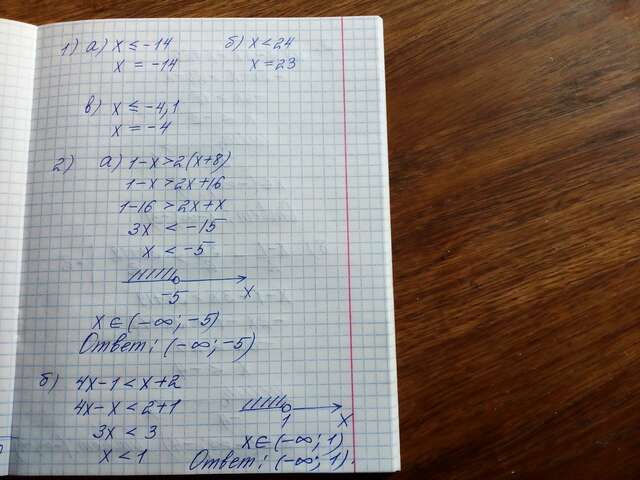 1) а) x ≤ -14 б) x < 24
x = -14 x = 23
в) x ≤ -4,1
x = -4
2) а) 1-x > 2(x+8)
1-x > 2x+16
1-16 > 2x+x
3x < -15
x < -5
-5 x
x ∈ (-∞; -5)
Ответ: (-∞; -5)
б) 4x-1 < x+2
4x-x < 2+1
3x < 3
x < 1
1 x
x ∈ (-∞; 1)
Ответ: (-∞; 1).